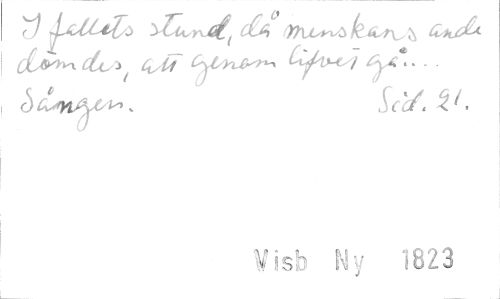 I fallets stund, då menskans ande
dömdes, att genom lifvet gå....
Sången. Sid. 21.
Visb Ny 1823